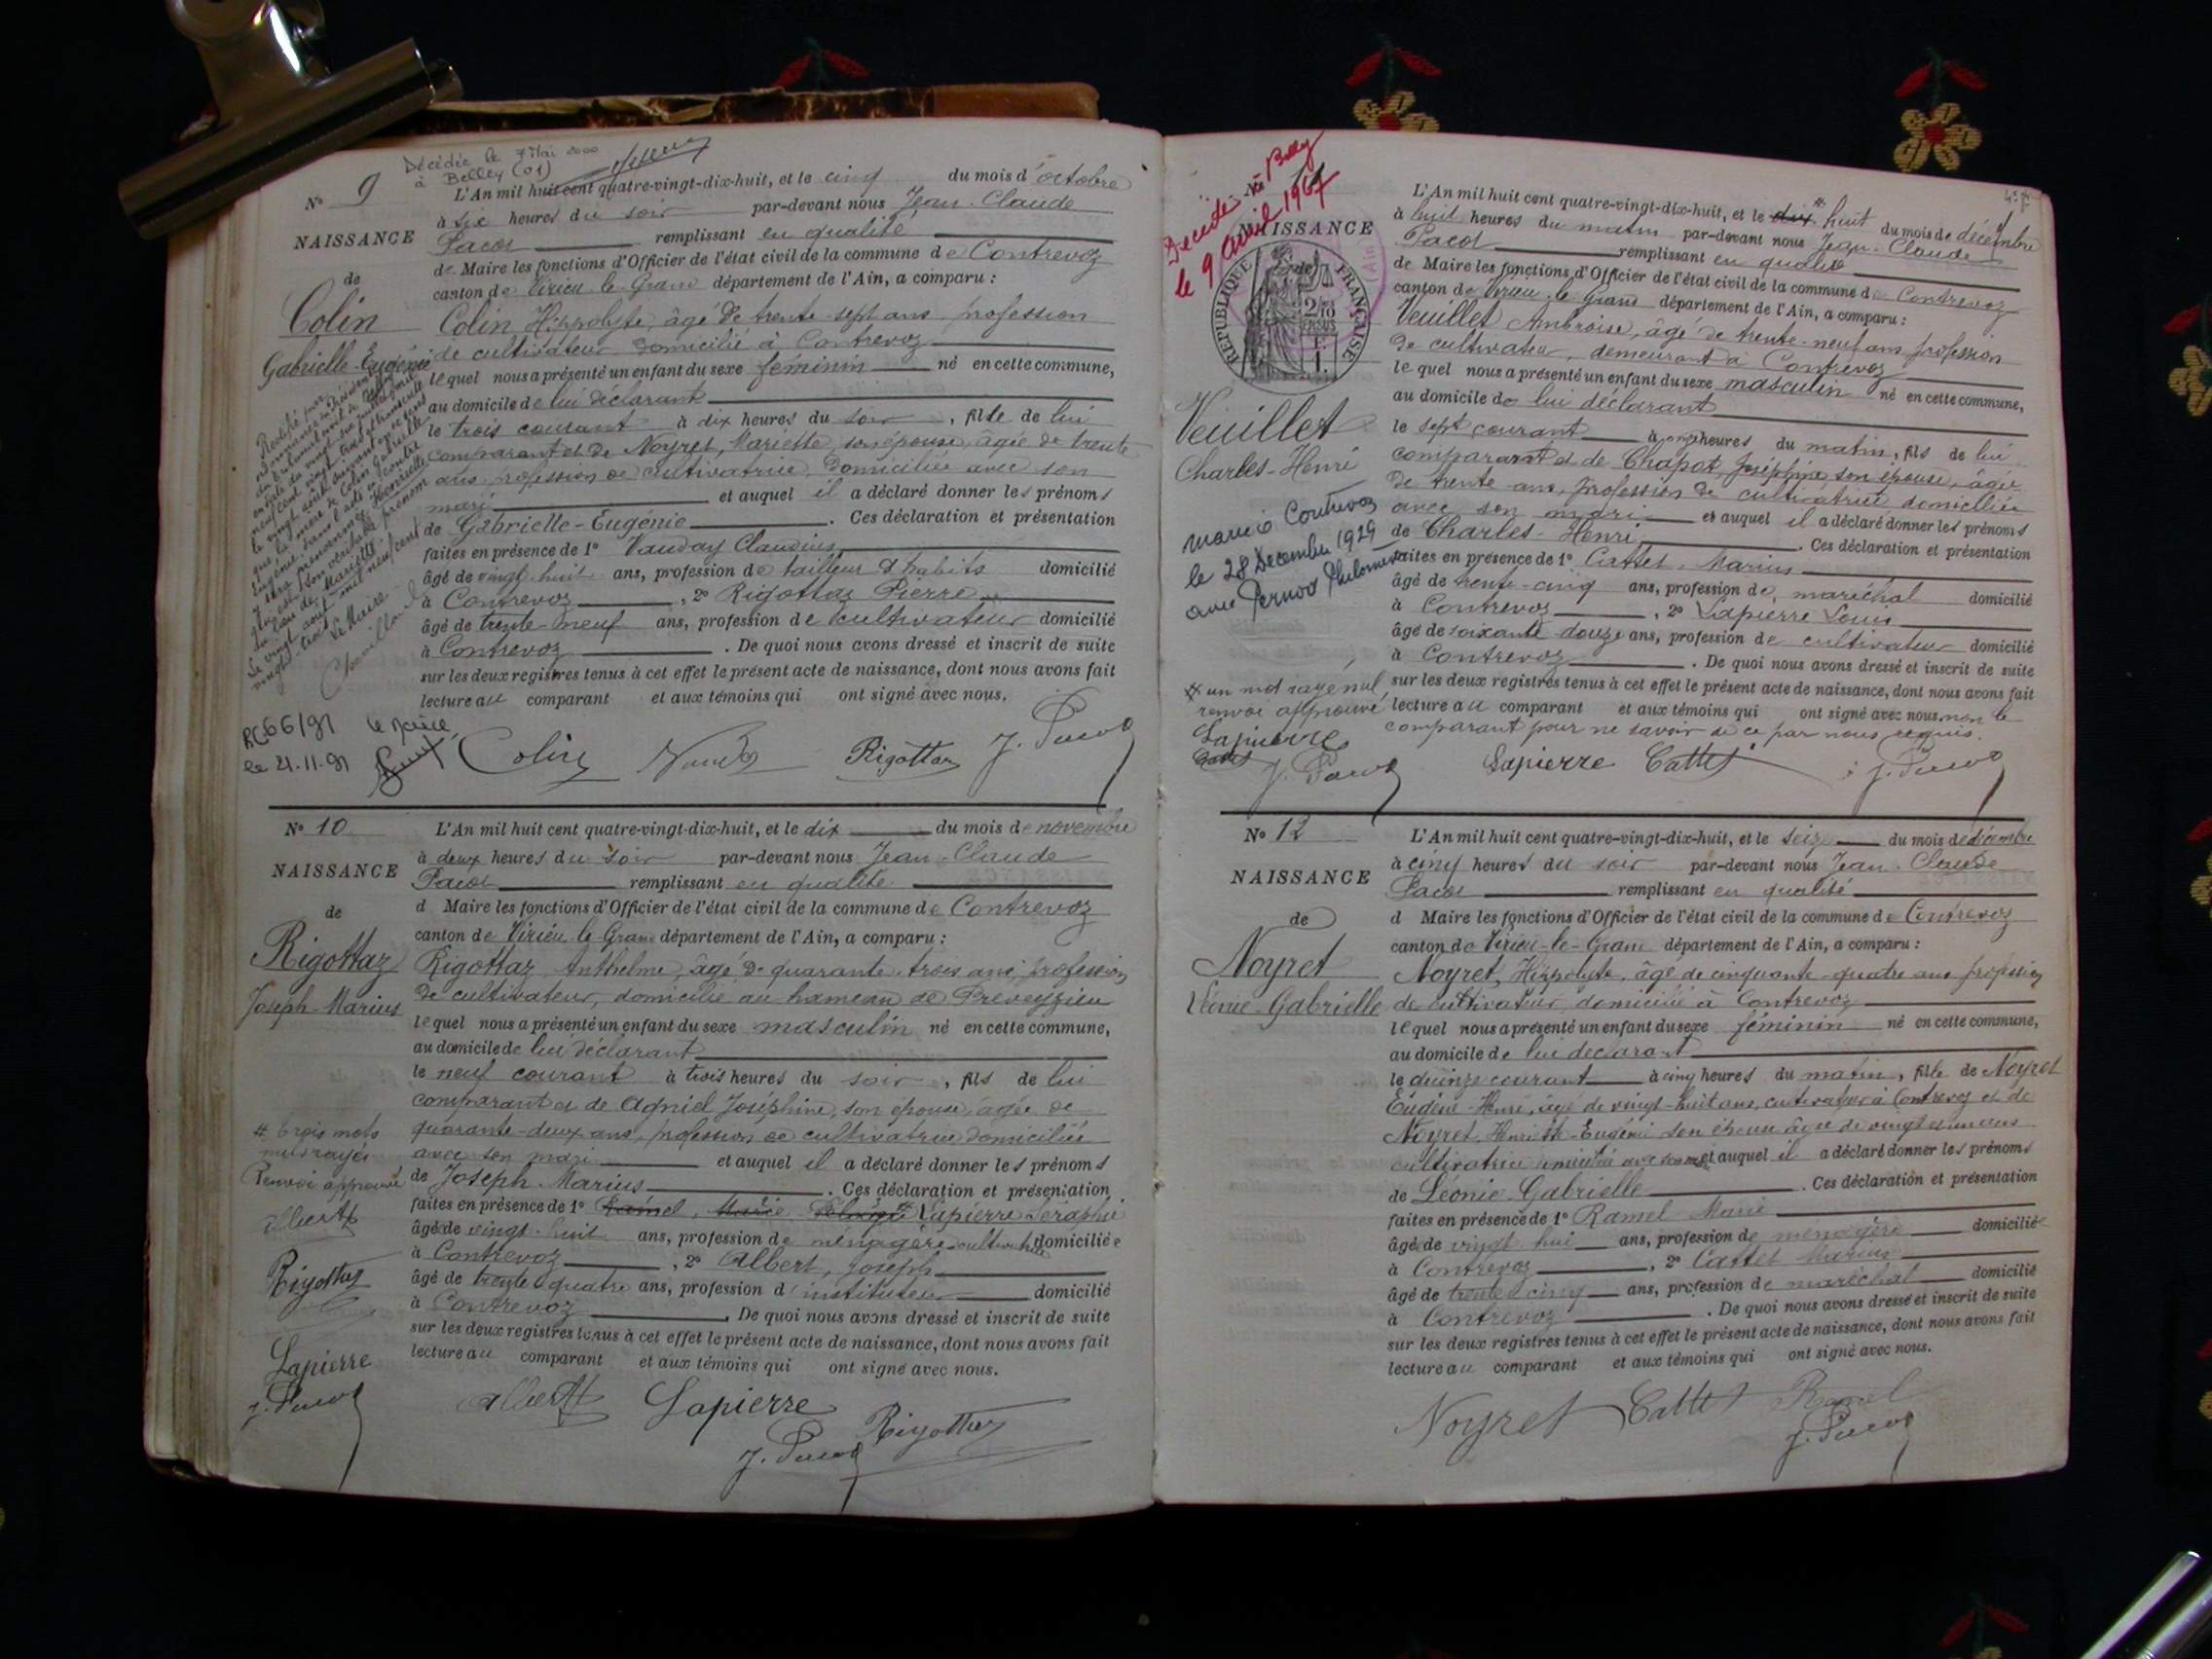 Décédée le 7 Mai 2000
à Belley (01)
N° 9
NAISSANCE
de
Colin
Gabrielle-Eugénie
L'An mil huit cent quatre-vingt-dix-huit, et le cinq du mois d'octobre
à six heures du soir par-devant nous Jean-Claude
Pacot remplissant en qualité
de Maire les fonctions d'Officier de l'état civil de la commune de Contrevoz
canton de Virieu-le-Grand département de l'Ain, a comparu :
Colin Hippolyte, âgé de trente-sept ans, profession
de cultivateur, domicilié à Contrevoz
lequel nous a présenté un enfant du sexe féminin né en cette commune,
au domicile de lui déclarant
le trois courant à dix heures du soir, fille de lui
comparant et de Noyret, Mariette, son épouse, âgée de trente
ans, profession de cultivatrice, domiciliée avec son
mari et auquel il a déclaré donner les prénoms
de Gabrielle-Eugénie. Ces déclaration et présentation
faites en présence de 1° Vauday Claudius
âgé de vingt-huit ans, profession de tailleur d'habits domicilié
à Contrevoz, 2° Rigottaz Pierre
âgé de trente-neuf ans, profession de cultivateur domicilié
à Contrevoz. De quoi nous avons dressé et inscrit de suite
sur les deux registres tenus à cet effet le présent acte de naissance, dont nous avons fait
lecture au comparant et aux témoins qui ont signé avec nous.
Le Maire
RC66/91 le
le 21.11.91
Colin Rigottaz J. Pacot
N° 10
NAISSANCE
de
Rigottaz
Joseph-Marius
L'An mil huit cent quatre-vingt-dix-huit, et le dix du mois de novembre
à deux heures du soir par-devant nous Jean-Claude
Pacot remplissant en qualité
d Maire les fonctions d'Officier de l'état civil de la commune de Contrevoz
canton de Virieu-le-Grand département de l'Ain, a comparu :
Rigottaz Anthelme, âgé de quarante-trois ans, profession
de cultivateur, domicilié au hameau de Preveyzieu
lequel nous a présenté un enfant du sexe masculin né en cette commune,
au domicile de lui déclarant
le neuf courant à trois heures du soir, fils de lui
comparant et de Agniel Joséphine, son épouse, âgée de
quarante-deux ans, profession de cultivatrice domiciliée
avec son mari et auquel il a déclaré donner les prénoms
de Joseph-Marius. Ces déclaration et présentation
faites en présence de 1° Ramel, Marie Lapierre Séraphie
âgé de vingt-huit ans, profession de ménagère domiciliée
à Contrevoz, 2° Albert, Joseph
âgé de trente-quatre ans, profession d'instituteur domicilié
à Contrevoz. De quoi nous avons dressé et inscrit de suite
sur les deux registres tenus à cet effet le présent acte de naissance, dont nous avons fait
lecture au comparant et aux témoins qui ont signé avec nous.
# trois mots
nuls rayés
Renvoi approuvé
Albert
Rigottaz
Lapierre
J. Pacot
Albert Lapierre
J. Pacot Rigottaz
Décédé à Belley
le 9 avril 1967
N° 11
NAISSANCE
de
RÉPUBLIQUE FRANÇAISE
Veuillet
Charles-Henri
marié à Contrevoz
le 28 Décembre 1929
avec Pernod Philomène
L'An mil huit cent quatre-vingt-dix-huit, et le dix # huit du mois de décembre
à huit heures du matin par-devant nous Jean-Claude
Pacot remplissant en qualité
de Maire les fonctions d'Officier de l'état civil de la commune de Contrevoz
canton de Virieu-le-Grand département de l'Ain, a comparu :
Veuillet Ambroise, âgé de trente-neuf ans, profession
de cultivateur, demeurant à Contrevoz
lequel nous a présenté un enfant du sexe masculin né en cette commune,
au domicile de lui déclarant
le sept courant à onze heures du matin, fils de lui
comparant et de Chapot, Joséphine, son épouse, âgée
de trente ans, profession de cultivatrice domiciliée
avec son mari et auquel il a déclaré donner les prénoms
de Charles-Henri. Ces déclaration et présentation
faites en présence de 1° Cattet, Marius
âgé de trente-cinq ans, profession de maréchal domicilié
à Contrevoz, 2° Lapierre Louis
âgé de soixante-douze ans, profession de cultivateur domicilié
à Contrevoz. De quoi nous avons dressé et inscrit de suite
sur les deux registres tenus à cet effet le présent acte de naissance, dont nous avons fait
lecture au comparant et aux témoins qui ont signé avec nous, non le
comparant pour ne savoir de ce par nous requis.
# un mot rayé nul,
renvoi approuvé
Lapierre
Cattet
J. Pacot Lapierre Cattet J. Pacot
N° 12
NAISSANCE
de
Noyret
Léonie-Gabrielle
L'An mil huit cent quatre-vingt-dix-huit, et le seize du mois de décembre
à cinq heures du soir par-devant nous Jean-Claude
Pacot remplissant en qualité
d Maire les fonctions d'Officier de l'état civil de la commune de Contrevoz
canton de Virieu-le-Grand département de l'Ain, a comparu :
Noyret, Hippolyte, âgé de cinquante-quatre ans profession
de cultivateur domicilié à Contrevoz
lequel nous a présenté un enfant du sexe féminin né en cette commune,
au domicile de lui déclarant
le quinze courant à cinq heures du matin, fille de Noyret
Eugène-Henri, âgé de vingt-huit ans, cultivateur à Contrevoz et de
Noyret, Henriette-Eugénie son épouse âgée de vingt et un ans
cultivatrice domiciliée avec son mari et auquel il a déclaré donner les prénoms
de Léonie-Gabrielle. Ces déclaration et présentation
faites en présence de 1° Ramel Marie
âgé de vingt-huit ans, profession de ménagère domiciliée
à Contrevoz, 2° Cattet Marius
âgé de trente-cinq ans, profession de maréchal domicilié
à Contrevoz. De quoi nous avons dressé et inscrit de suite
sur les deux registres tenus à cet effet le présent acte de naissance, dont nous avons fait
lecture au comparant et aux témoins qui ont signé avec nous.
Noyret Cattet Ramel
J. Pacot